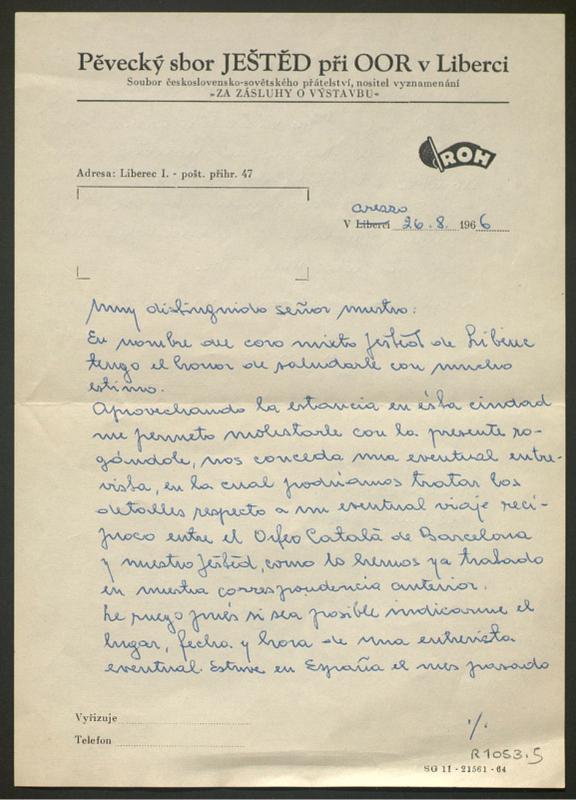 Pěvecký sbor JEŠTĚD při OOR v Liberci
Soubor československo-sovětského přátelství, nositel vyznamenání
»ZA ZÁSLUHY O VÝSTAVBU«
ROH
Adresa: Liberec I. - pošt. přihr. 47
arezzo
V Liberci 26.8. 1966
Muy distinguido señor mestro:
En nombre del coro mixto Ještěd de Liberec
tengo el honor de saludarle con mucho
estimo.
Aprovechando la estancia en ésta ciudad
me permeto molistarle con la presente ro-
gándole, nos conceda una eventual entre-
vista, en la cual podríamos tratar los
detalles respecto a un eventual viaje recí-
proco entre el Orfeo Catalâ de Barcelona
y nuestro Ještěd, como lo hemos ya tratado
en nuestra correspondencia anterior.
Le ruego pués si sea posible indicarme el
lugar, fecha y hora de una entrevista
eventual. Estuve en España el mes pasado
Vyřizuje
Telefon
./.
R1053.5
SG 11 - 21561 - 64